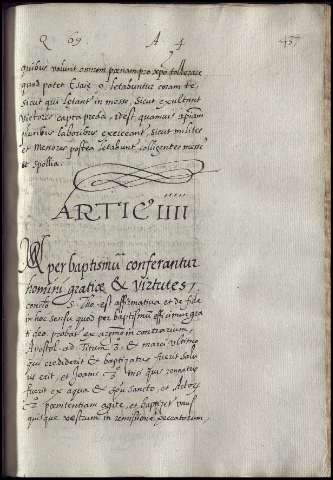 Q 69 A 4 457
quibus volunt omnem poenam pro xpo tollerare
quod patet Esaie 9. letabuntur coram te,
sicut qui letant in messe, sicut exultant
victores capta preda, idest quamvis
pluribus laboribus exerceant, sicut milites
et messores postea letabunt, colligentes messe
et spollia.
ARTIC IIII
per baptismū conferantur
homini gratiae & virtutes,
S. Tho. est affirmativa et de fide
in hoc sensu quod per baptismū efficimur gra
ti deo probat ex in contrarium,
Apostol. ad Titum 3. & marci ultimo
qui crediderit & baptizatus fuerit salv
us erit, et Joanis 3. nisi quis renatus
fuerit ex aqua & spu sancto, et Actor
2. poenitentiam agite, et baptizet unus
quisque vestrum in remissione peccatorum,